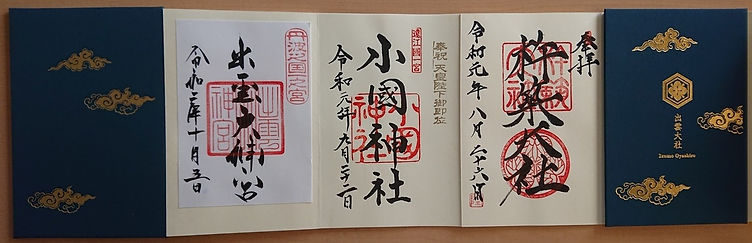 出雲大社
Izumo Oyashiro
奉拝
杵築大社
令和元年八月二十六日
奉祝 天皇陛下御即位
遠江國一宮
小國神社
小國神社
令和元年九月二十二日
出雲大神宮
出雲神宮
令和 年十月 日